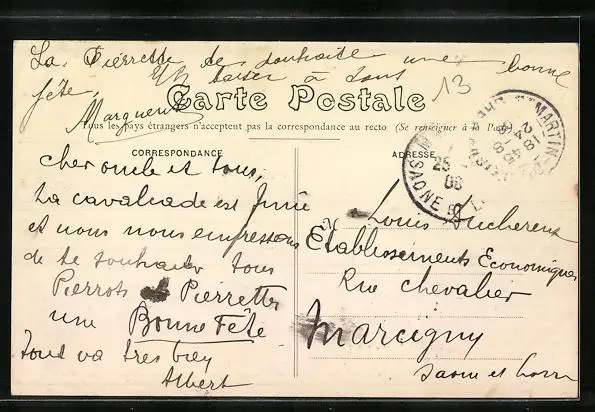 La Pierrette te souhaite une bonne
fête, un baiser à tous
Marguerite
13
Carte Postale
Tous les pays étrangers n'acceptent pas la correspondance au recto (Se renseigner à la Poste)
CORRESPONDANCE
ADRESSE
cher oncle et tous,
La cavalcade est finie
et nous nous empressons
de te souhaiter tous
Pierrots et Pierrettes
une Bonne Fête
tout va très bien
Albert
ST MARTIN
18 45
25
06
SAONE
M Louis Ducheneux
Etablissements Economiques
Rue Chevalier
Marcigny
Saone et Loire